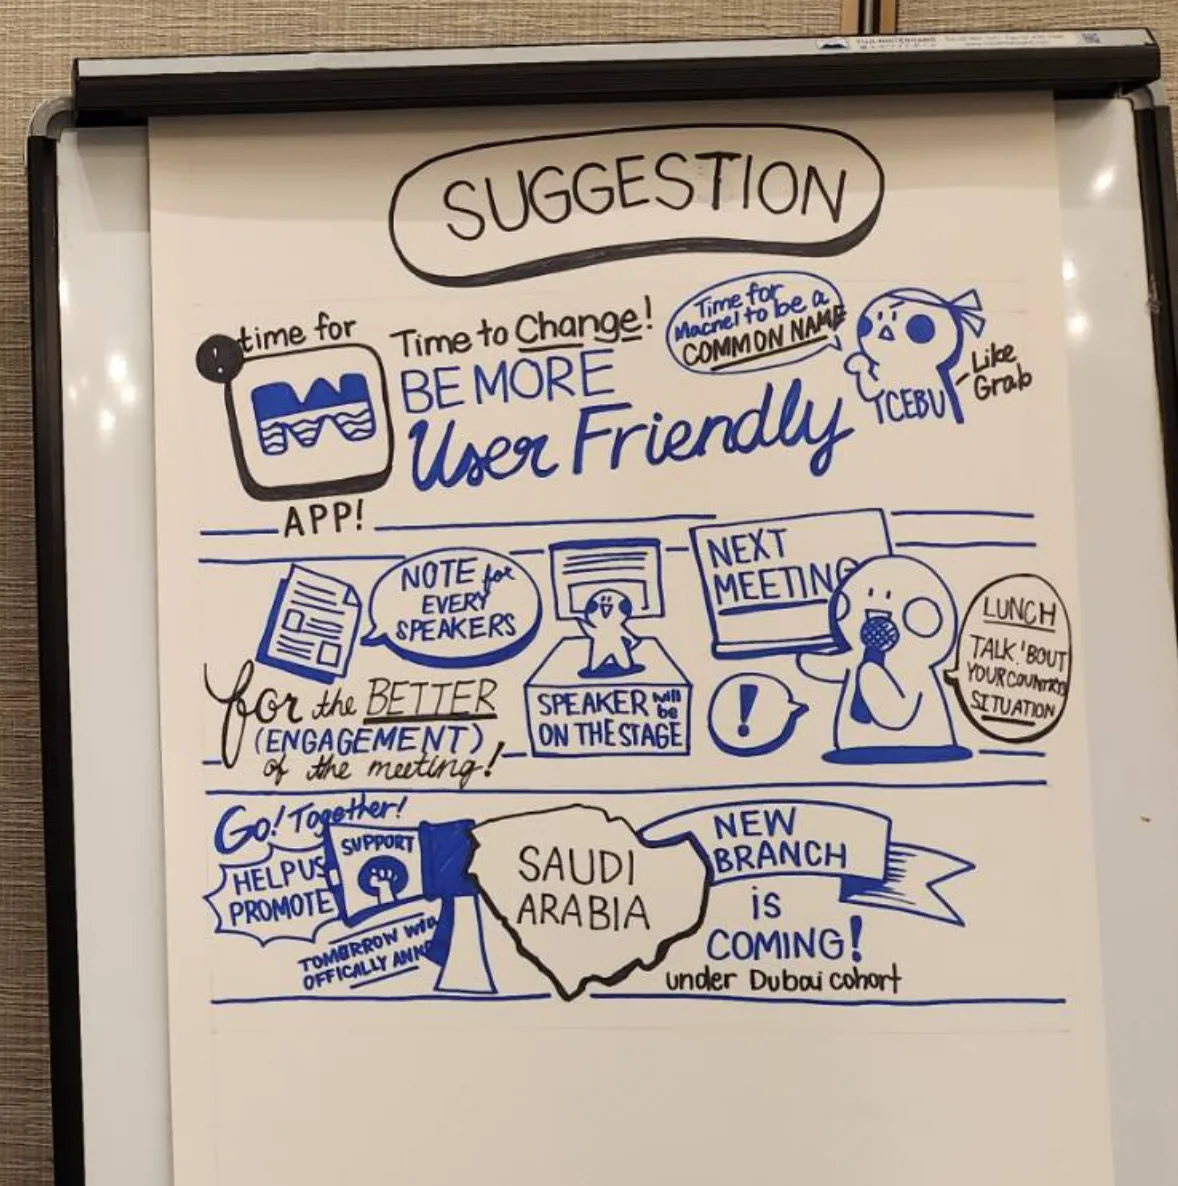 SUGGESTION
time for
APP!
Time to Change!
BE MORE
User Friendly
Time for
Macnel to be a
COMMON NAME
CEBU
Like
Grab
NOTE for
EVERY
SPEAKERS
for the BETTER
(ENGAGEMENT)
of the meeting!
SPEAKER will be
ON THE STAGE
NEXT
MEETING
!
LUNCH
TALK 'BOUT
YOUR COUNTRY
SITUATION
Go! Together!
HELP US
PROMOTE
SUPPORT
TOMORROW will
OFFICALLY ANN
SAUDI
ARABIA
NEW
BRANCH
iS
COMING!
under Dubai cohort